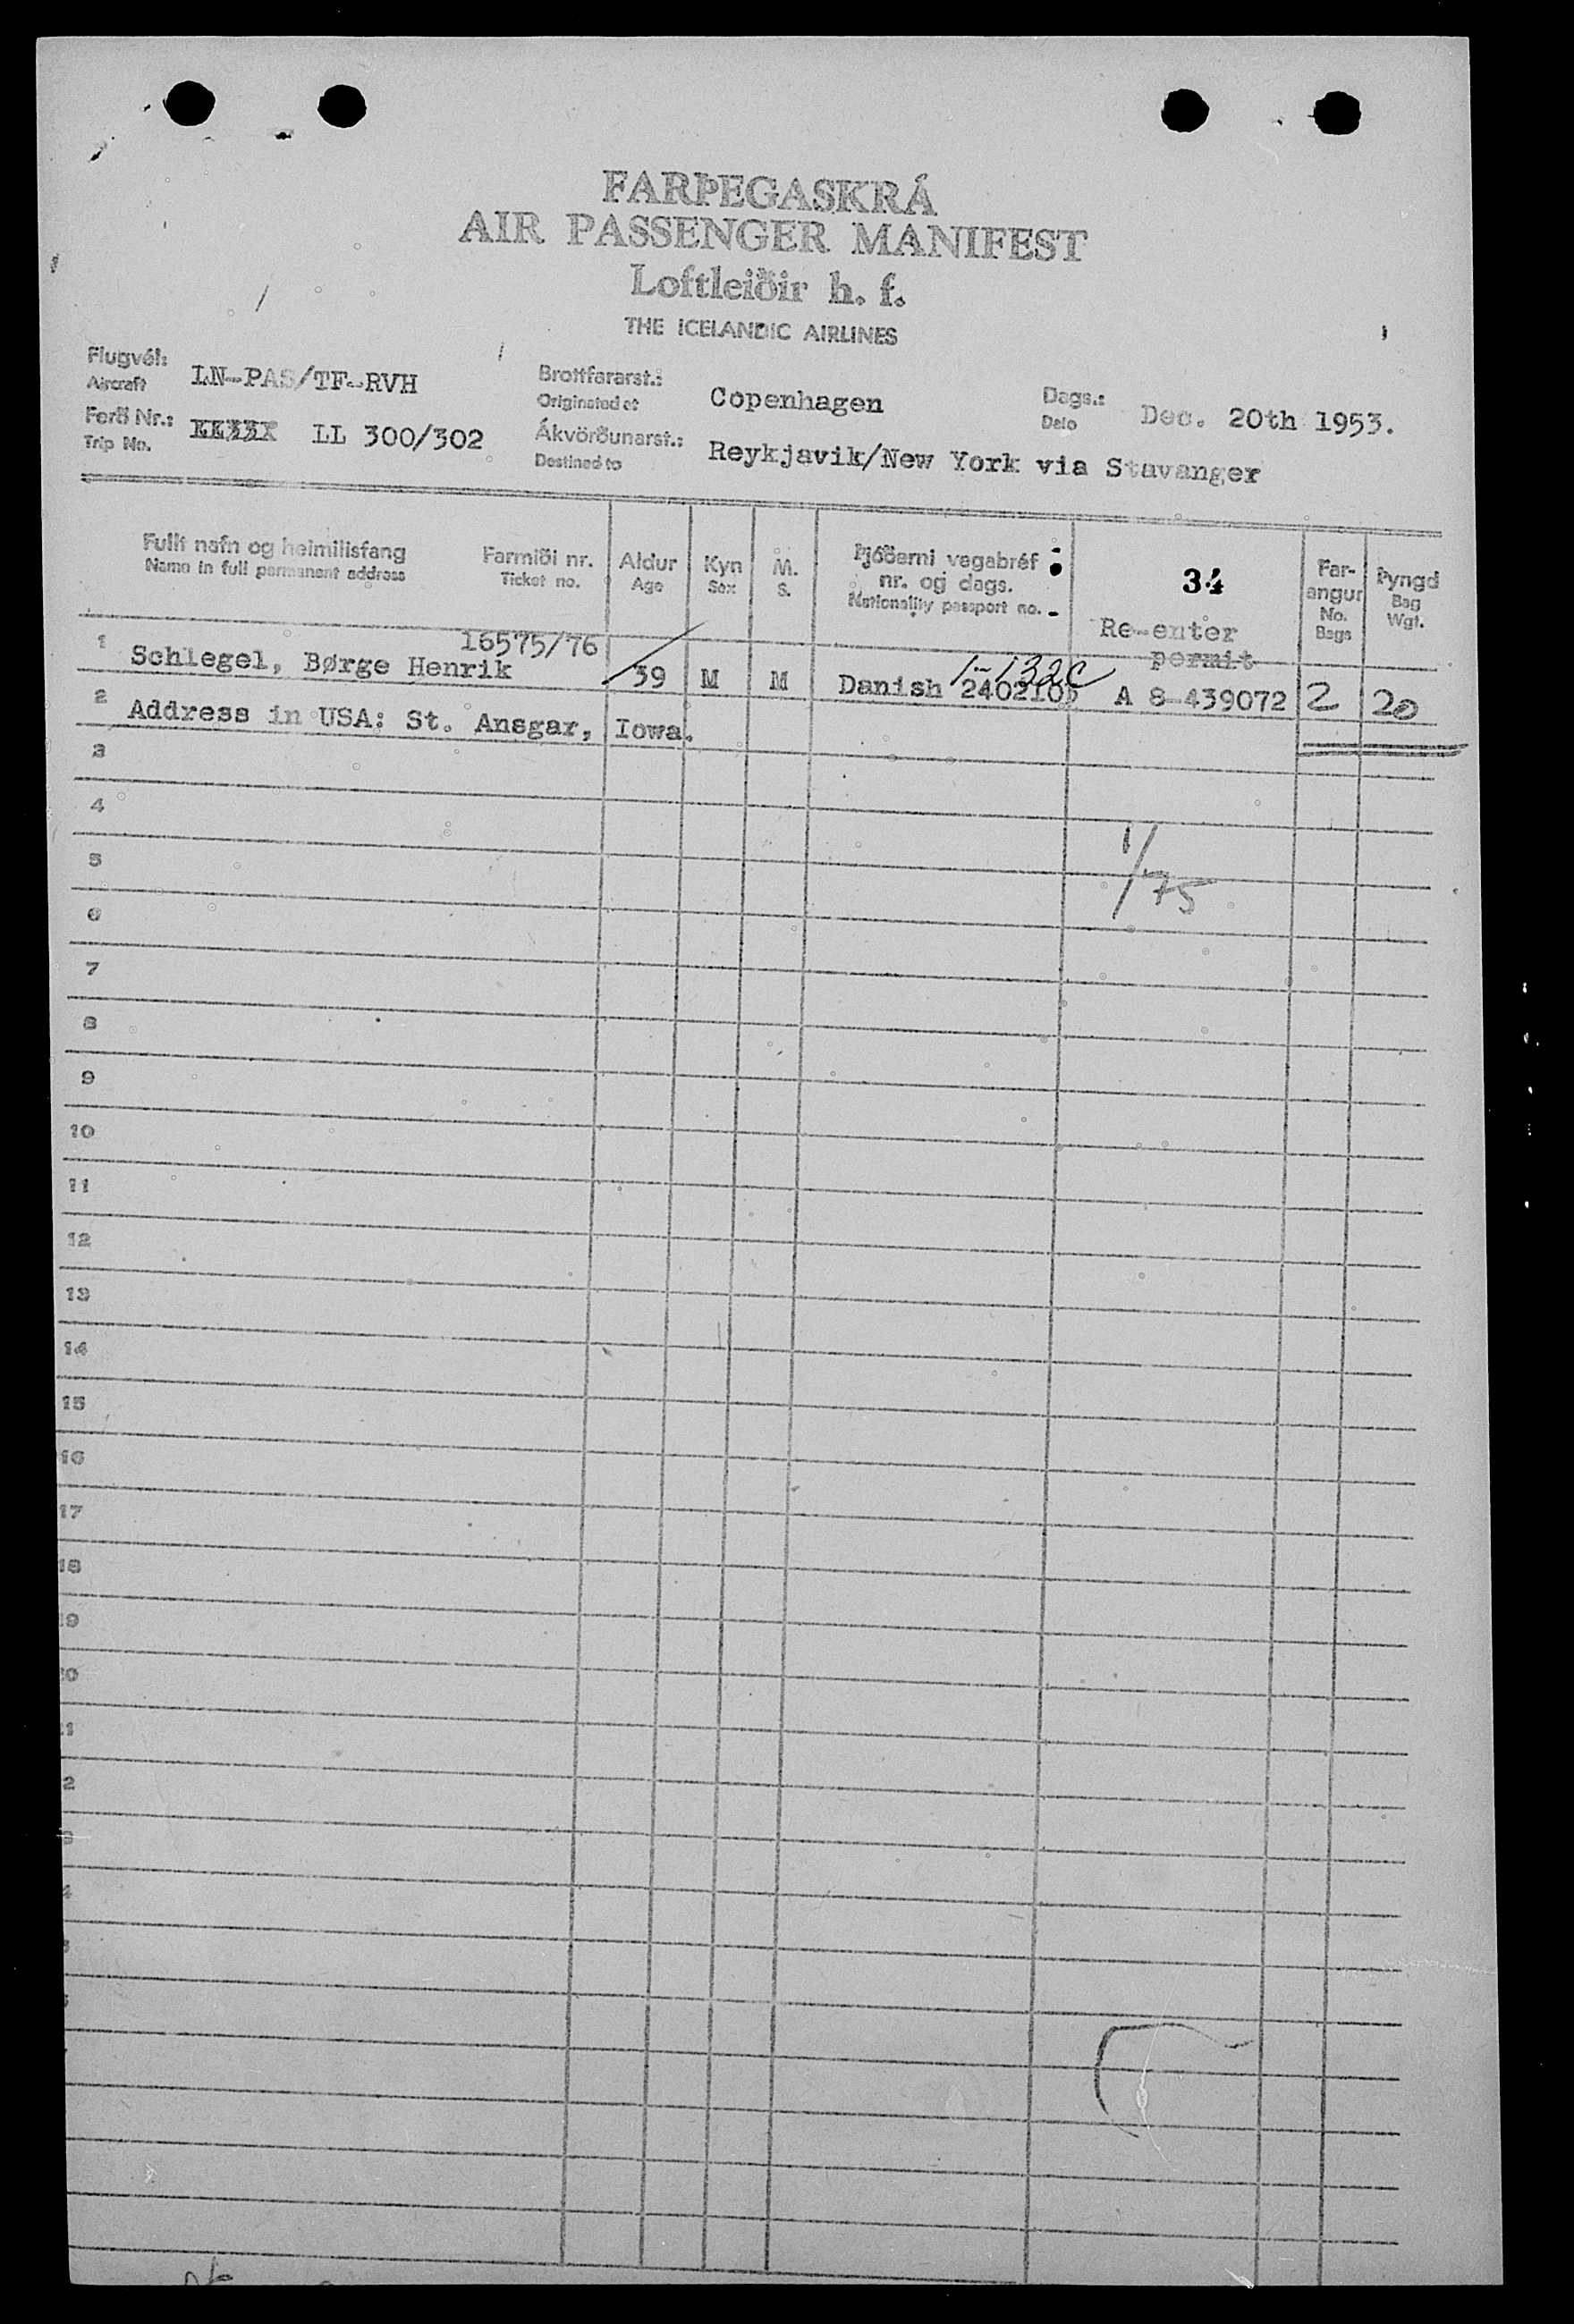 FARÞEGASKRÁ
AIR PASSENGER MANIFEST
Loftleiðir h. f.
THE ICELANDIC AIRLINES
Flugvél:
Aircraft
LN-PAS/TF-RVH
Brottfararst.:
Originated at
Copenhagen
Dags.:
Date
Dec. 20th 1953.
Ferð Nr.:
Trip No.
LL 300/302
Ákvörðunarst.:
Destined to
Reykjavik/New York via Stavanger
Fullt nafn og heimilisfang
Name in full permanent address
Farmiði nr.
Ticket no.
Aldur
Age
Kyn
Sex
M.
S.
Þjóðerni vegabréf
nr. og dags.
Nationality passport no.
34
Re-enter
permit
Far-
angur
No.
Bags
Þyngd
Bag
Wgt.
16575/76
1 Schlegel, Børge Henrik 39 M M Danish A 8 439072 2 20
1-132C
2 Address in USA: St. Ansgar, Iowa.
3
4
1/75
5
6
7
8
9
10
11
12
13
14
15
16
17
18
19